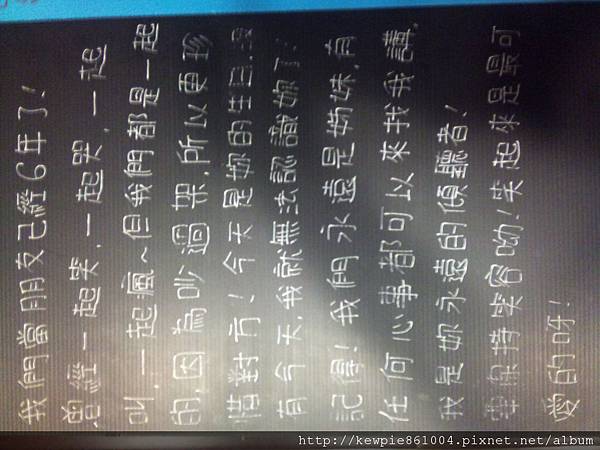 我們當朋友已經6年了!
曾經一起笑.一起哭.一起
叫.一起瘋~但我們都是一起
的,因為吵過架,所以更珍
惜對方!今天是妳的生日.沒
有今天,我就無法認識妳了!
記得!我們永遠是姊妹,有
任何心事都可以來找我講,
我是妳永遠的傾聽者!
保持笑容呦!笑起來是最可
愛的呀!
http://kewpie861004.pixnet.net/album